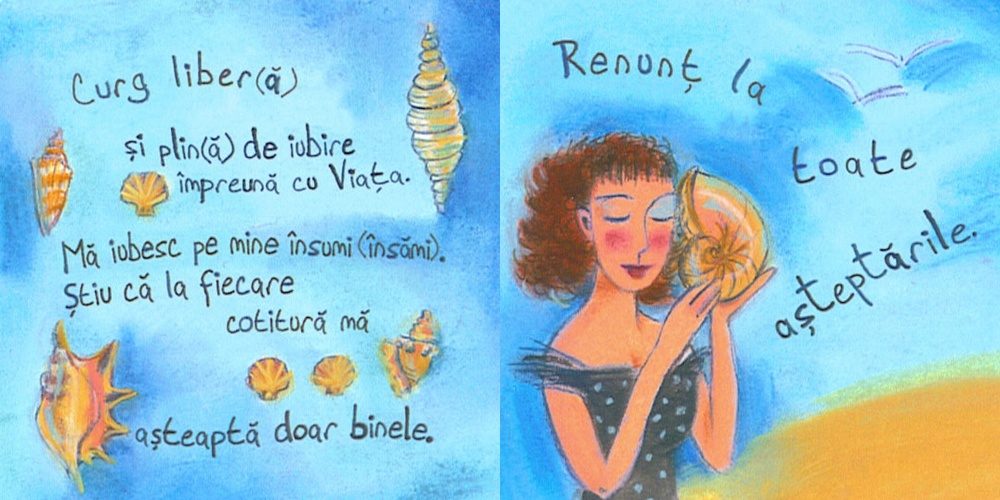 Curg liber(ă)
și plin(ă) de iubire
împreună cu Viața.
Mă iubesc pe mine însumi (însămi).
Știu că la fiecare
cotitură mă
așteaptă doar binele.
Renunț la
toate
așteptările.